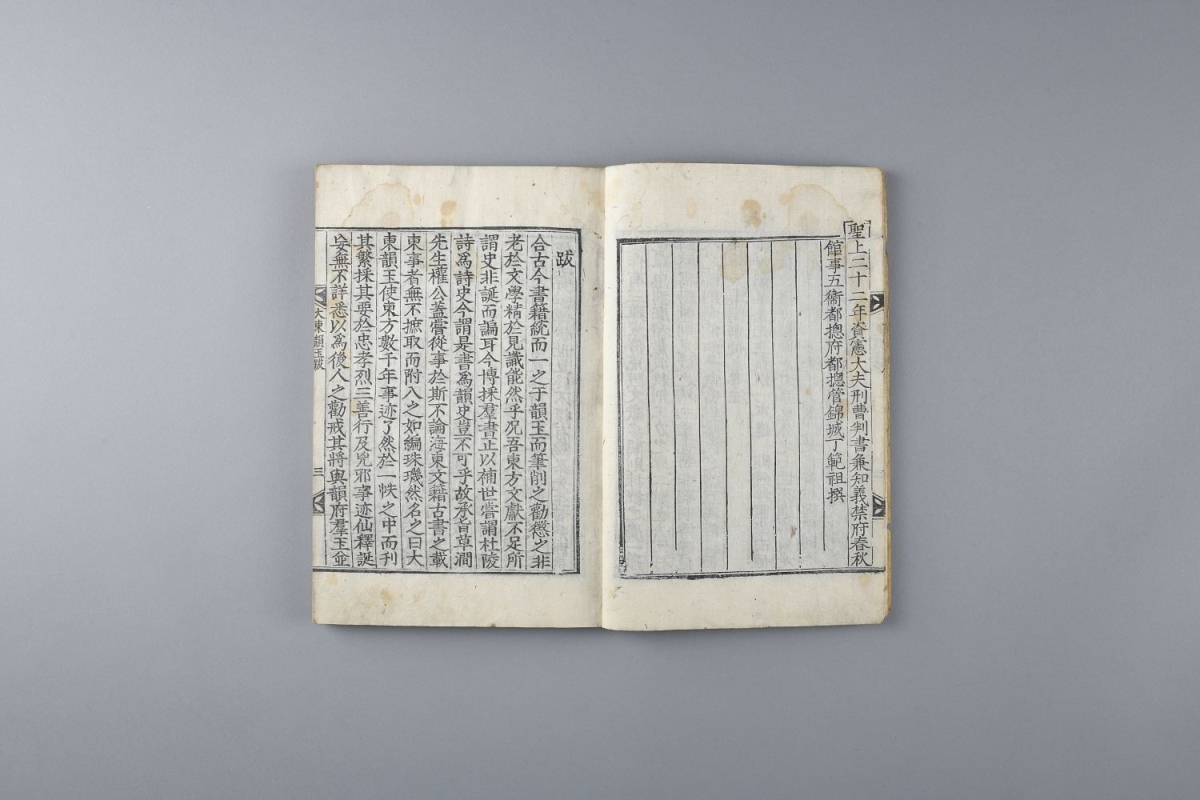 聖上三十二年資憲大夫刑曹判書兼知義禁府春秋
館事五衛都摠府都摠管錦城丁範祖撰
跋
合古今書籍統而一之于韻玉而筆削之勸懲之非
老於文學精於見識能然乎况吾東方文獻不足所
謂史非誕而諞耳今博採羣書止以補世嘗謂杜陵
詩爲詩史今謂是書爲韻史豈不可乎故承旨草澗
先生權公蓋嘗從事於斯不論海東文籍古書之載
東事者無不摭取而附入之如編珠璣然名之曰大
東韻玉使東方數千年事迹了然於一帙之中而刊
其繁採其要於忠孝烈三善行及兇邪事迹仙釋誕
妄無不詳悉以爲後人之勸戒其將與韻府羣玉並
大東韻玉跋
三